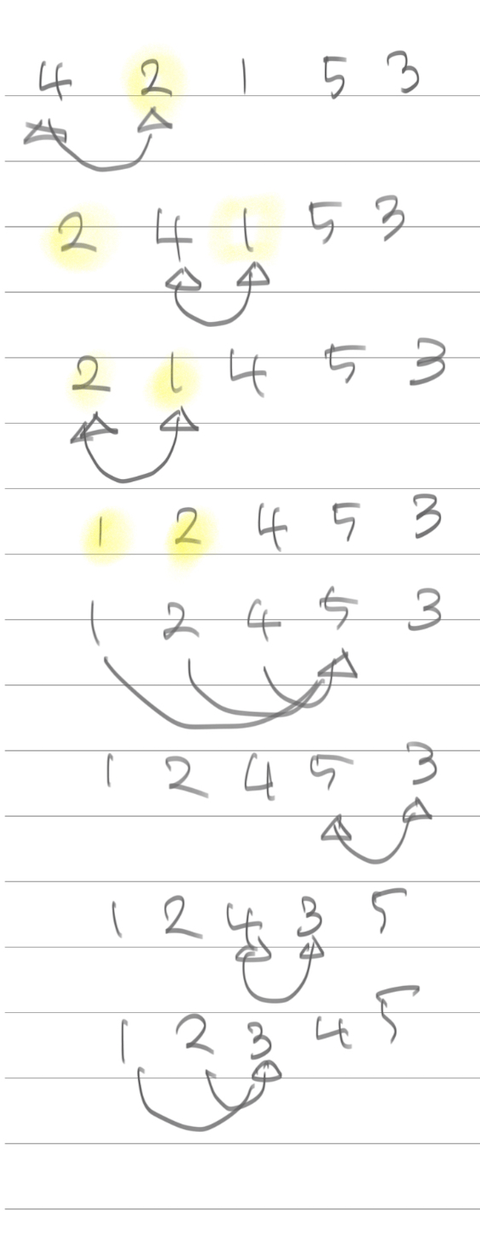 4 2 1 5 3
2 4 1 5 3
2 1 4 5 3
1 2 4 5 3
1 2 4 5 3
1 2 4 5 3
1 2 4 3 5
1 2 3 4 5